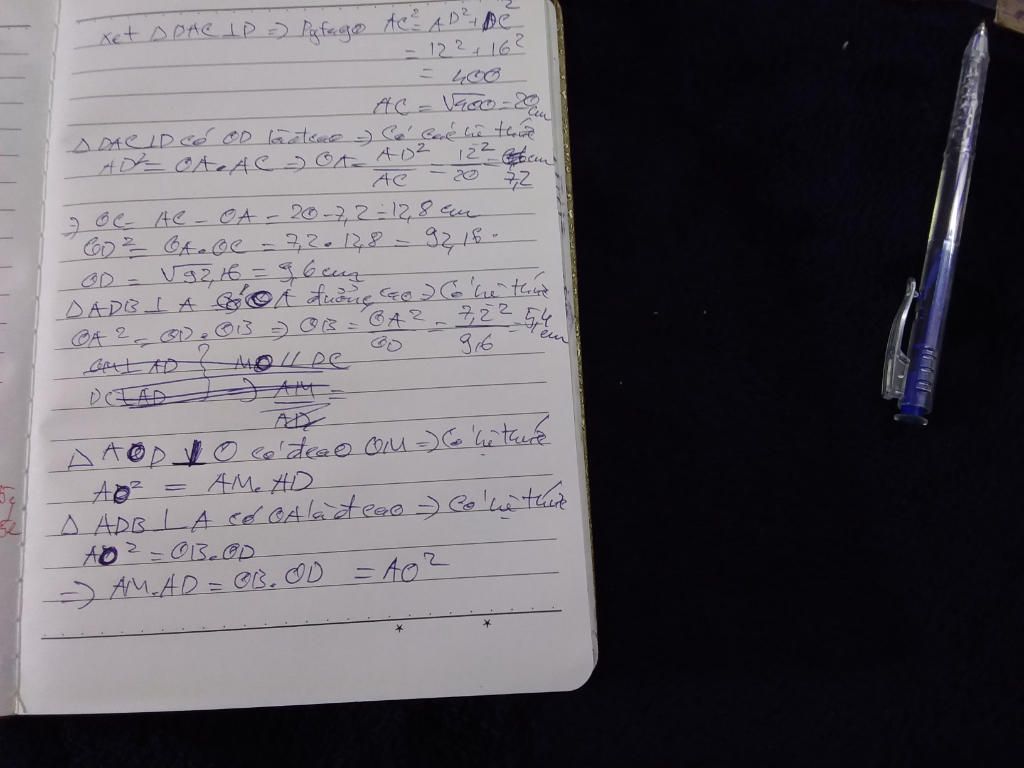 xét △DAC⊥D => Pytago AC² = AD² + DC²
= 12² + 16²
= 400
AC = √400 = 20 cm
△DAC⊥D có OD là đcao => Có các hệ thức
AD² = OA.AC => OA = AD²/AC = 12²/20 = 7,2 cm
=> OC = AC - OA = 20 - 7,2 = 12,8 cm
OD² = OA.OC = 7,2.12,8 = 92,16.
OD = √92,16 = 9,6 cm
△ADB⊥A có OA đường cao => Có hệ thức
OA² = OD.OB => OB = OA²/OD = 7,2²/9,6 = 5,4 cm
OM⊥AD } MO // DC
DC⊥AD } => AM/AD =
△AOD⊥O có đcao OM => Có hệ thức
AO² = AM.AD
△ADB⊥A có OA là đcao => Có hệ thức
AO² = OB.OD
=> AM.AD = OB.OD = AO²